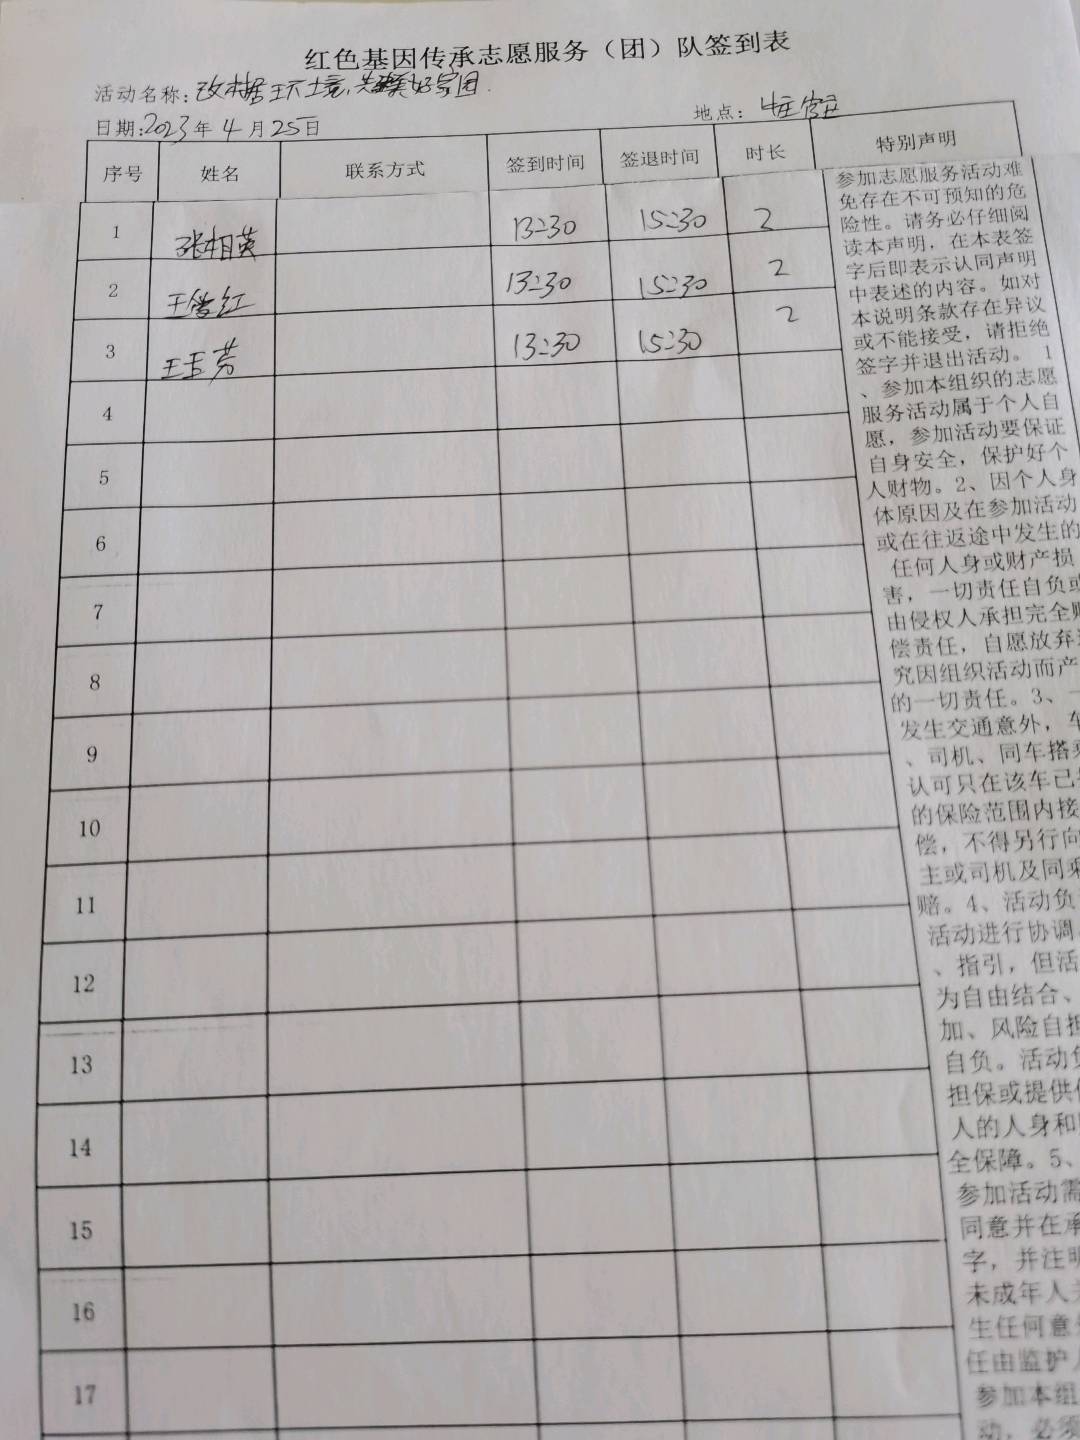 红色基因传承志愿服务（团）队签到表
活动名称：改善人居环境，共建美好家园.
日期：2023年4月25日
地点：
序号 姓名 联系方式 签到时间 签退时间 时长 特别声明
1 张相英 13:30 15:30 2
2 王俊红 13:30 15:30 2
3 王玉芳 13:30 15:30 2
4
5
6
7
8
9
10
11
12
13
14
15
16
17
参加志愿服务活动难
免存在不可预知的危
险性。请务必仔细阅
读本声明，在本表签
字后即表示认同声明
中表述的内容。如对
本说明条款存在异议
或不能接受，请拒绝
签字并退出活动。 1
、参加本组织的志愿
服务活动属于个人自
愿，参加活动要保证
自身安全，保护好个
人财物。2、因个人身
体原因及在参加活动
或在往返途中发生的
任何人身或财产损
害，一切责任自负或
由侵权人承担完全赔
偿责任，自愿放弃
究因组织活动而产
的一切责任。3、一
发生交通意外，车
、司机、同车搭乘
认可只在该车已
的保险范围内接
偿，不得另行向
主或司机及同乘
赔。4、活动负
活动进行协调
、指引，但活
为自由结合、
加、风险自担
自负。活动负
担保或提供
人的人身和
全保障。5、
参加活动需
同意并在承
字，并注明
未成年人
生任何意
任由监护
参加本组
动，必须